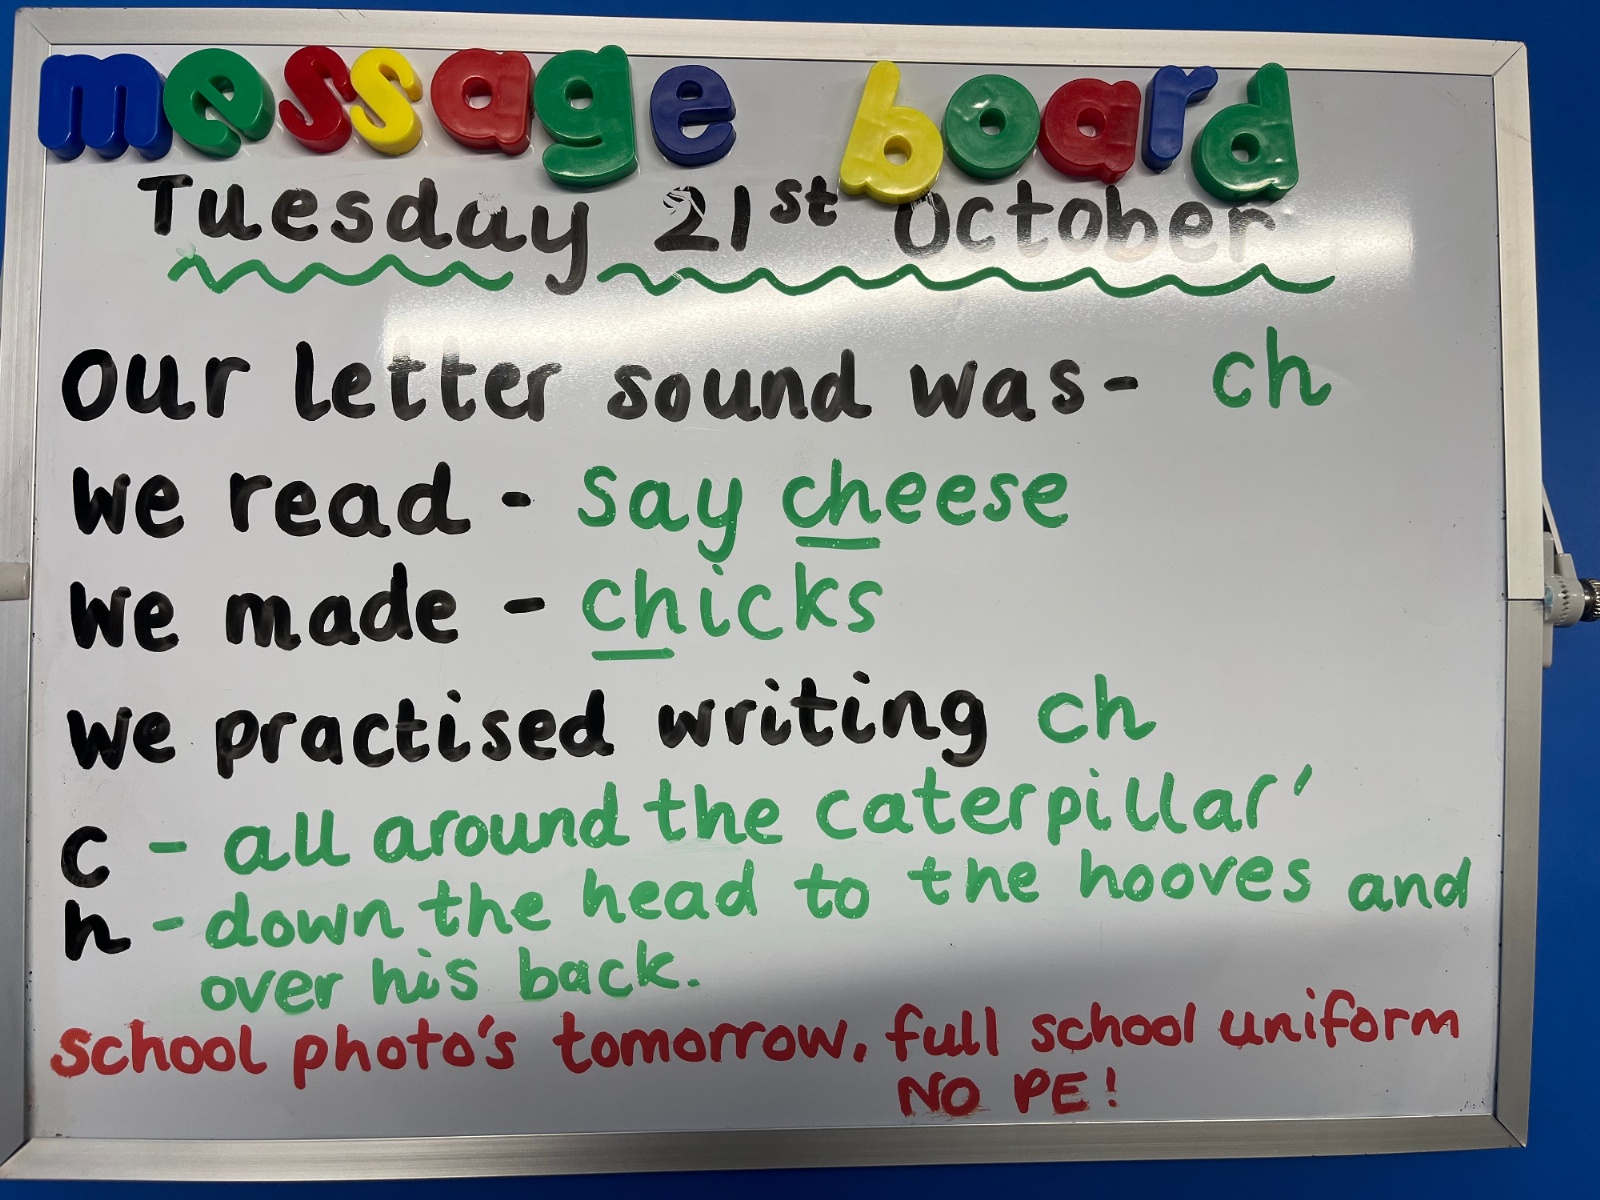 message board
Tuesday 21st October
Our letter sound was - ch
We read - say cheese
We made - chicks
We practised writing ch
c - all around the caterpillar'
h - down the head to the hooves and
over his back.
School photo's tomorrow, full school uniform
NO PE!